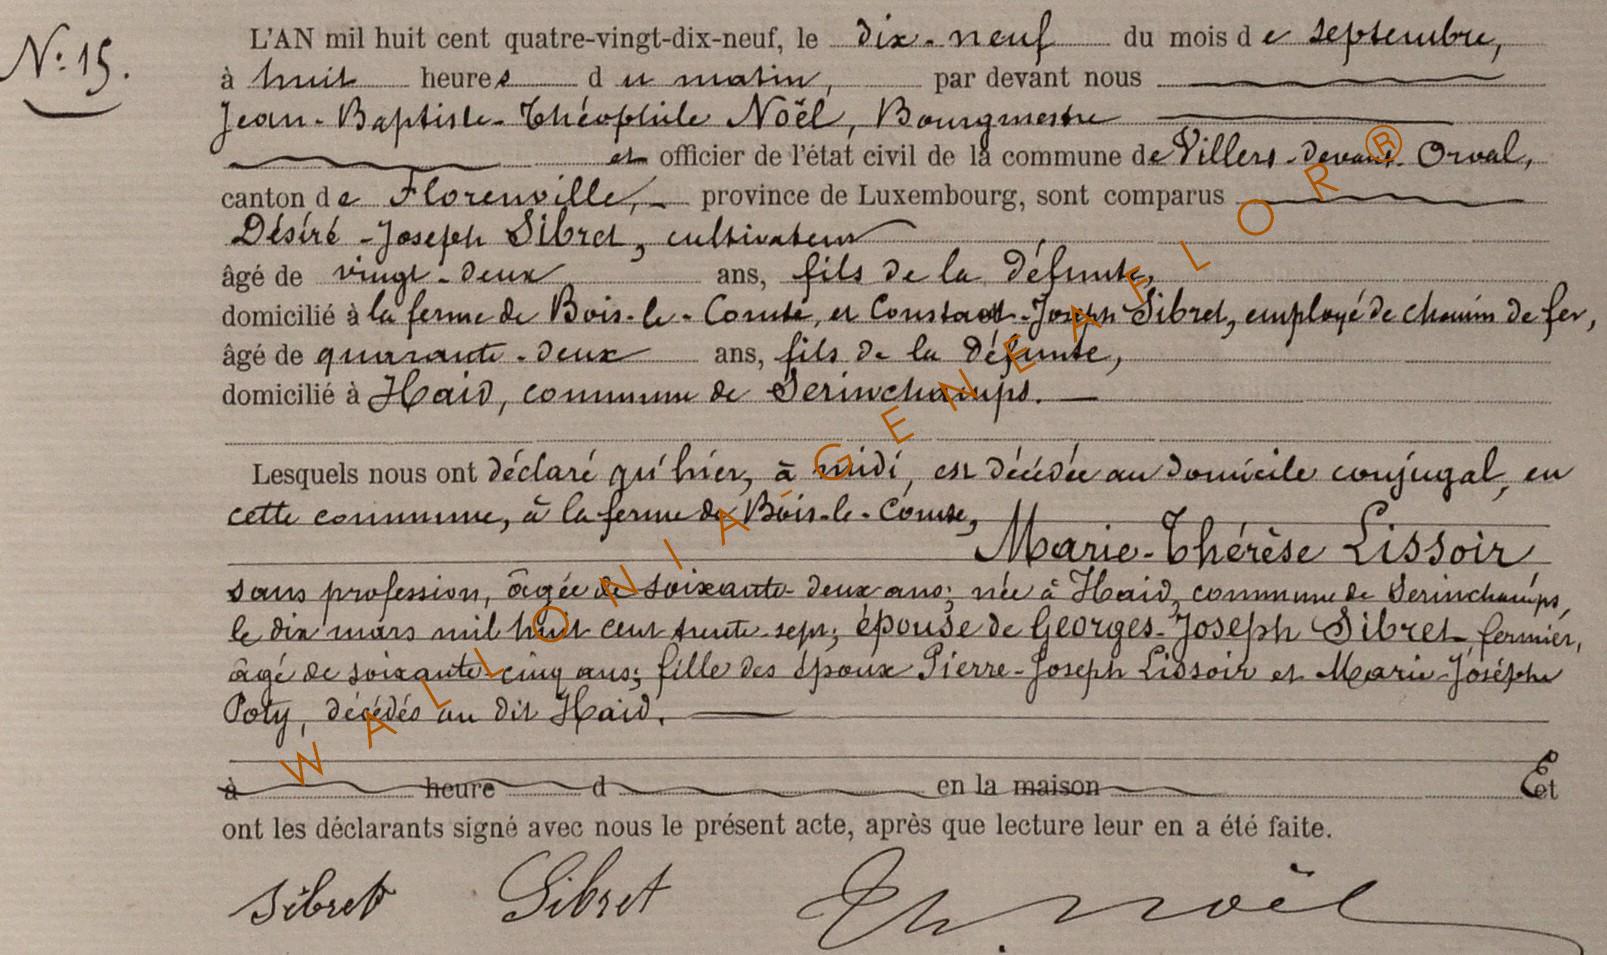 N.: 15.
L'AN mil huit cent quatre-vingt-dix-neuf, le dix-neuf du mois de septembre,
à huit heures du matin, par devant nous
Jean-Baptiste-Théophile Noël, Bourgmestre
et officier de l'état civil de la commune de Villers-devant-Orval,
canton de Florenville, province de Luxembourg, sont comparus
Désiré-Joseph Sibret, cultivateur
âgé de vingt-deux ans, fils de la défunte,
domicilié à la ferme de Bois-le-Comte, et Constant-Joseph Sibret, employé de chemin de fer,
âgé de quarante-deux ans, fils de la défunte,
domicilié à Haid, commune de Serinchamps.
Lesquels nous ont déclaré qu'hier, à midi, est décédée au domicile conjugal, en
cette commune, à la ferme de Bois-le-Comte,
Marie-Thérèse Lissoir
sans profession, âgée de soixante-deux ans; née à Haid, commune de Serinchamps,
le dix mars mil huit cent trente-sept; épouse de Georges-Joseph Sibret, fermier,
âgé de soixante-cinq ans; fille des époux Pierre-Joseph Lissoir et Marie-Joséphe
Poty, décédés au dit Haid.
à heure d en la maison Et
ont les déclarants signé avec nous le présent acte, après que lecture leur en a été faite.
Sibret Sibret Th. Noël
WALLONIA-GENEAFLOR®